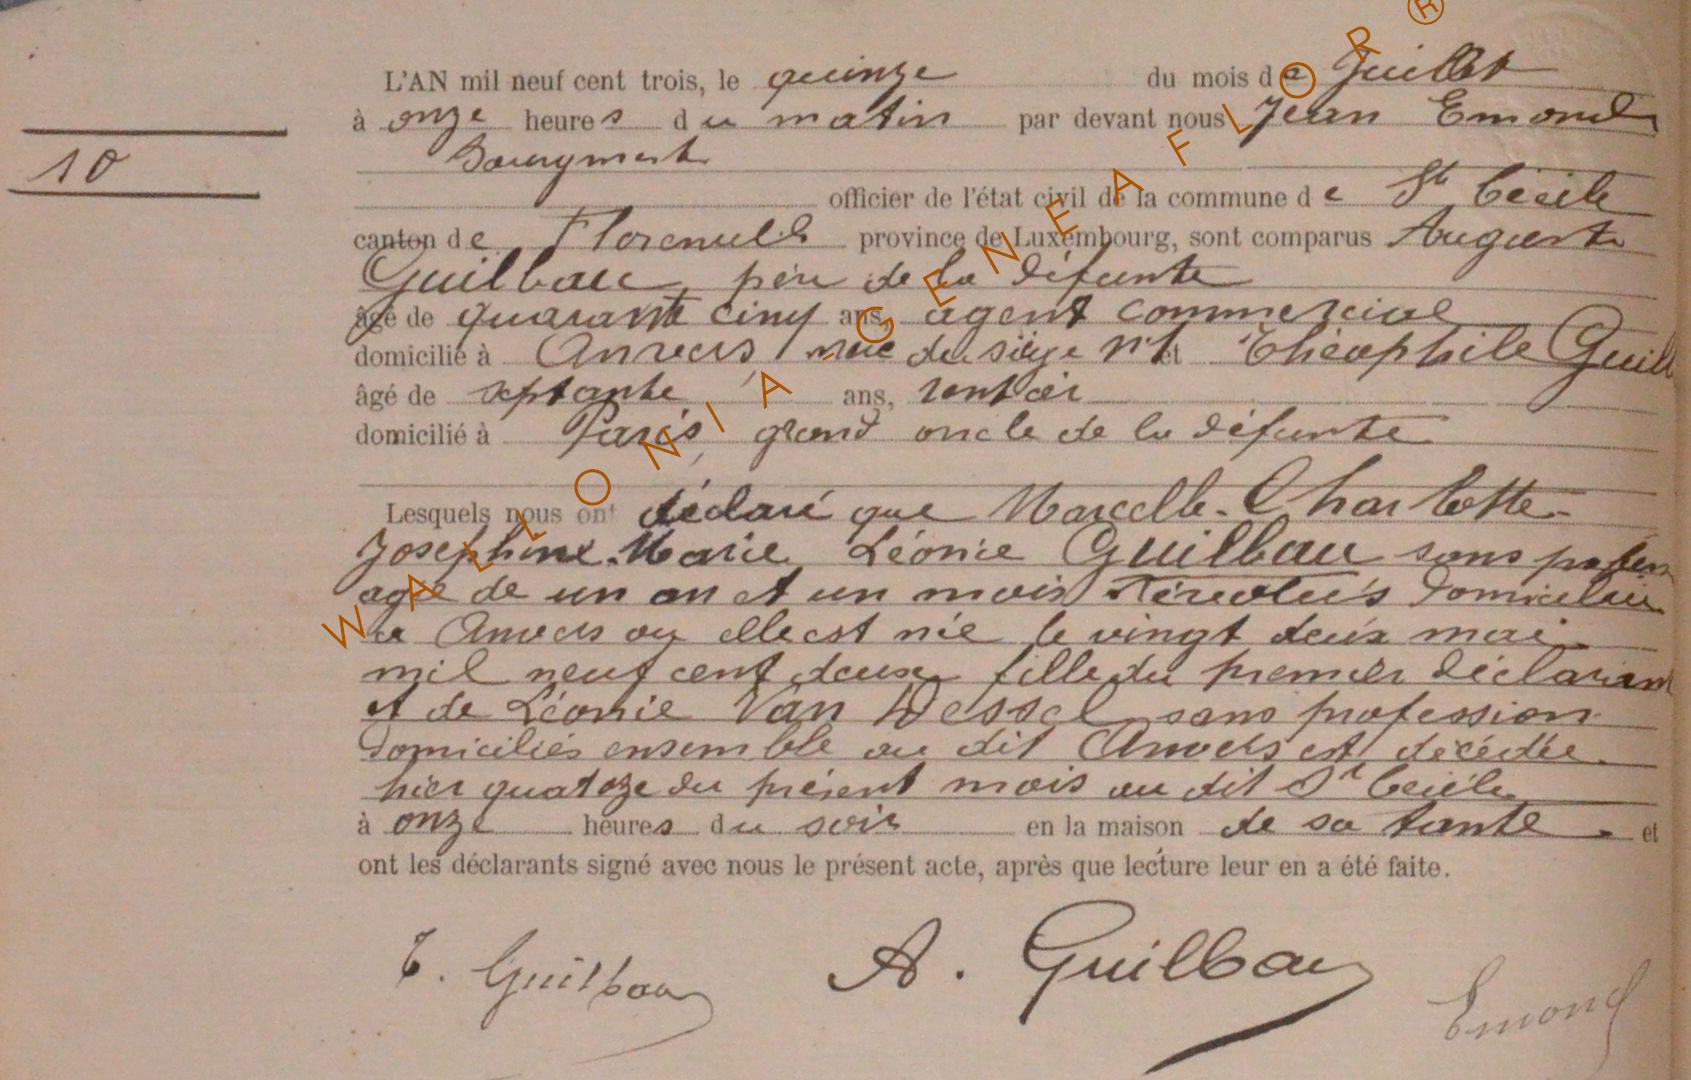 L'AN mil neuf cent trois, le quinze du mois de Juillet
10
à onze heures du matin par devant nous Jean Emond
Bourgmestre
officier de l'état civil de la commune de Ste Cécile
canton de Florenville province de Luxembourg, sont comparus Auguste
Guilbau, père de la défunte
âgé de quarante cinq ans, agent commercial
domicilié à Anvers, rue du siège n°1 et Théophile Guilb
âgé de septante ans, rentier
domicilié à Paris, grand oncle de la défunte
Lesquels nous ont déclaré que Marcelle-Charlotte-
Josephine-Marie Léonie Guilbau sans profession
agée de un an et un mois révolus domiciliée
à Anvers ou elle est née le vingt deux mai
mil neuf cent deux, fille du premier déclarant
et de Léonie Van Dessel, sans profession
domiciliés ensemble au dit Anvers est décédée
hier quatorze du présent mois au dit Ste Cécile
à onze heures du soir en la maison de sa tante et
ont les déclarants signé avec nous le présent acte, après que lecture leur en a été faite.
T. Guilbau A. Guilbau Emond
WALLONIA-GENEAFLOR®